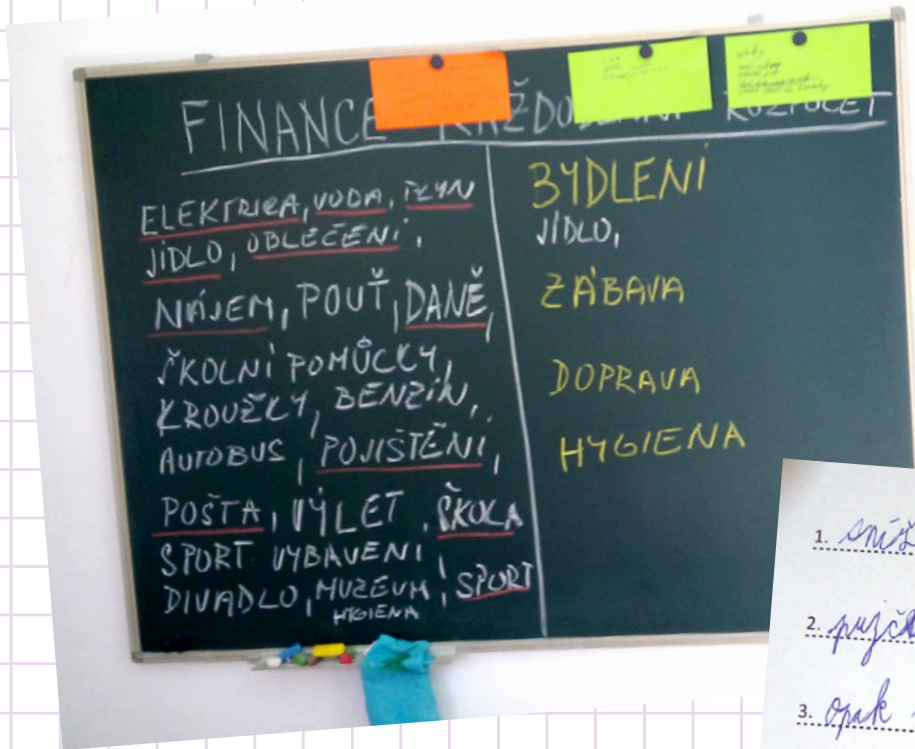 FINANCE ROZPOČET
ELEKTRIKA, VODA, PLYN
JÍDLO, OBLEČENÍ,
NÁJEM, POUŤ, DANĚ,
ŠKOLNÍ POMŮCKY,
KROUŽKY, BENZÍN,
AUTOBUS, POJIŠTĚNÍ,
POŠTA, VÝLET, ŠKOLA
SPORT. VYBAVENÍ,
DIVADLO, MUZEUM, SPORT
HYGIENA
BYDLENÍ
JÍDLO,
ZÁBAVA
DOPRAVA
HYGIENA
1.
2.
3. opak